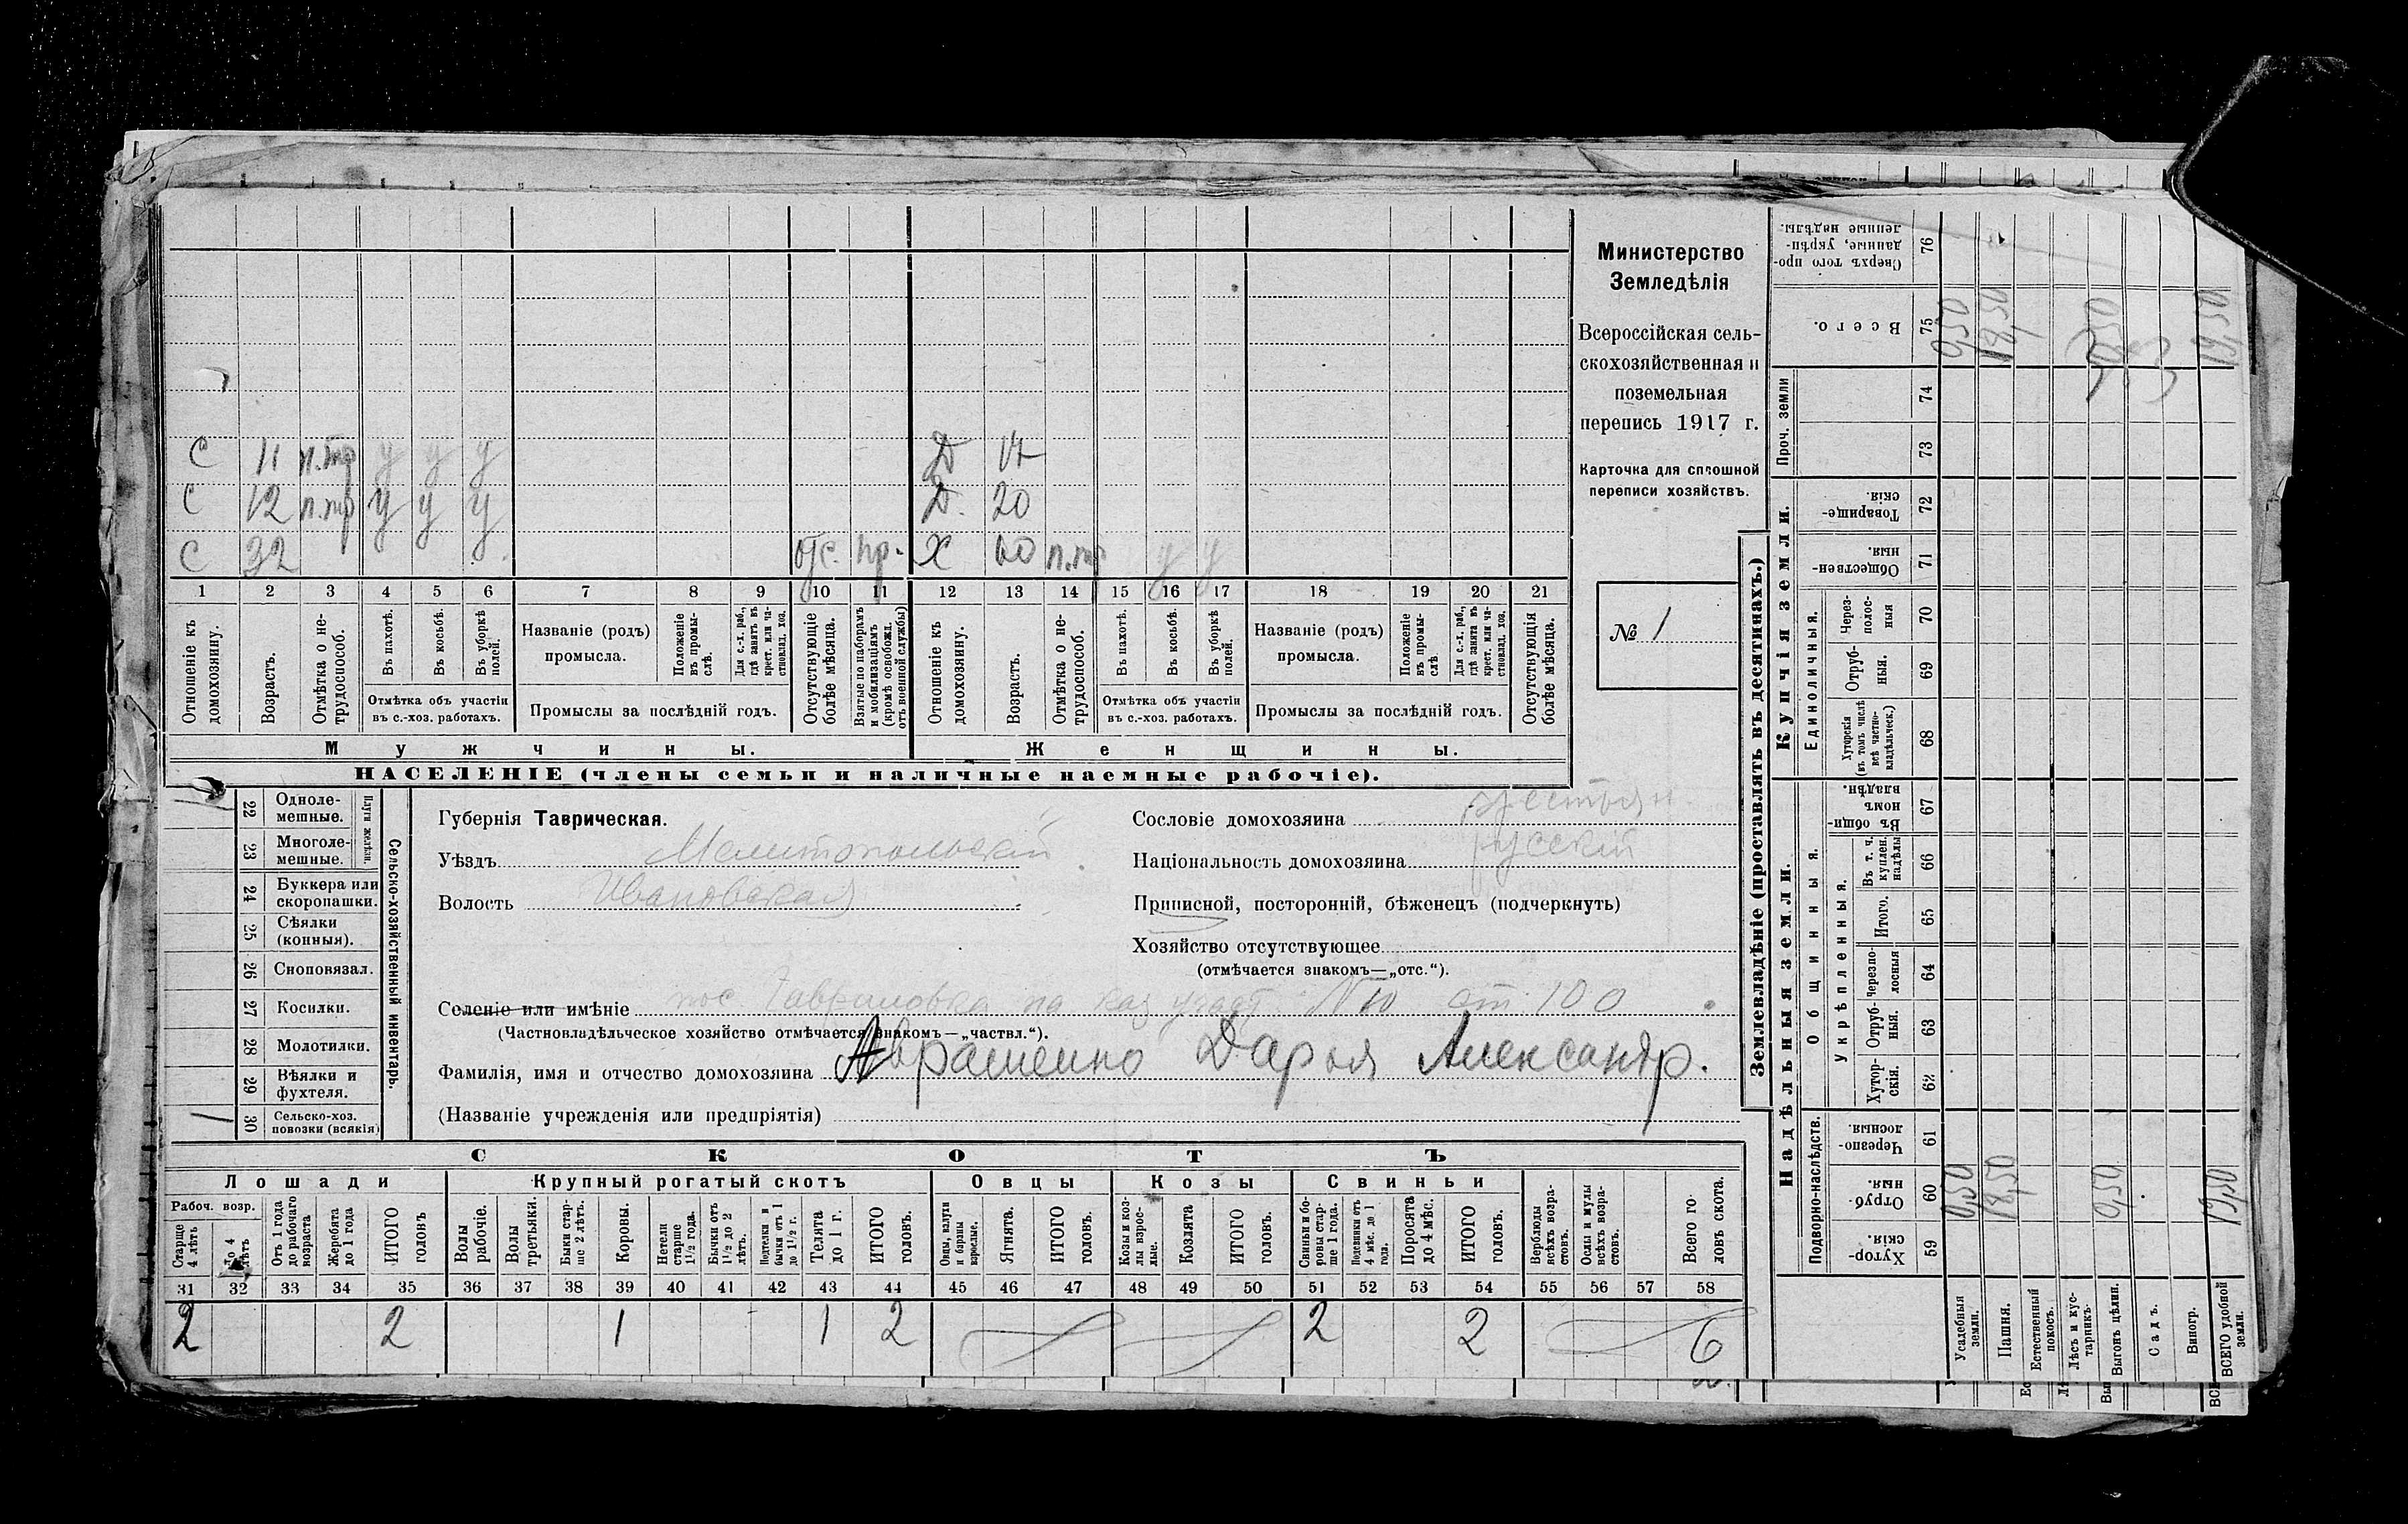 С 11 п.тр у у у Д 17
С 12 п.тр у у у Д. 20
С 32 отс. пр. Х 60 п.тр у у
1 2 3 4 5 6 7 8 9 10 11 12 13 14 15 16 17 18 19 20 21
Отношеніе къ домохозяину.
Возрастъ.
Отмѣтка о не-
трудоспособ.
Въ пахотѣ.
Въ косьбѣ.
Въ уборкѣ
полей.
Отмѣтка объ участіи
въ с.-хоз. работахъ.
Названіе (родъ)
промысла.
Положеніе
въ промы-
слѣ.
Для с.-х. раб.,
гдѣ занятъ въ
крест. или ча-
стновлад. хоз.
Промыслы за послѣдній годъ.
Отсутствующіе
болѣе мѣсяца.
Взятые по наборамъ
и мобилизаціямъ
(кромѣ освобожд.
отъ военной службы)
Отношеніе къ
домохозяину.
Возрастъ.
Отмѣтка о не-
трудоспособ.
Въ пахотѣ.
Въ косьбѣ.
Въ уборкѣ
полей.
Отмѣтка объ участіи
въ с.-хоз. работахъ.
Названіе (родъ)
промысла.
Положеніе
въ промы-
слѣ
Для с.-х. раб.,
гдѣ занята въ
крест. или ча-
стновлад. хоз.
Промыслы за послѣдній годъ.
Отсутствующія
болѣе мѣсяца.
Мужчины.
Женщины.
НАСЕЛЕНІЕ (члены семьи и наличные наемные рабочіе).
Министерство
Земледѣлія
Всероссійская сель-
скохозяйственная и
поземельная
перепись 1917 г.
Карточка для сплошной
переписи хозяйствъ.
№ 1
22 Одноле-
мешные.
23 Многоле-
мешные.
Плуги желѣзн.
24 Буккера или
скоропашки.
25 Сѣялки
(конныя).
26 Сноповязал.
27 Косилки.
28 Молотилки.
29 Вѣялки и
фухтеля.
1 30 Сельско-хоз.
повозки (всякія)
Сельско-хозяйственный инвентарь.
Губернія Таврическая.
Уѣздъ Мелитопольскій
Волость Ивановская
Сословіе домохозяина крестьян.
Національность домохозяина русскій
Приписной, посторонній, бѣженецъ (подчеркнуть)
Хозяйство отсутствующее
(отмѣчается знакомъ—„отс.“).
Селеніе или имѣніе пос. Гавриловка на каз участ. №10 ст. 100
(Частновладѣльческое хозяйство отмѣчается знакомъ—„частвл.“).
Фамилія, имя и отчество домохозяина Аврашенко Дарья Александр.
(Названіе учрежденія или предпріятія)
СКОТЪ
Лошади Крупный рогатый скотъ Овцы Козы Свиньи
Рабоч. возр.
Старше
4 лѣтъ
До 4
лѣтъ
Отъ 1 года
до рабочаго
возраста
Жеребята
до 1 года
ИТОГО
головъ
Волы
рабочіе.
Волы
третьяки.
Быки стар-
ше 2 лѣтъ.
Коровы.
Нетели
старше
1½ года.
Бычки отъ
1½ до 2
лѣтъ.
Подтелки и
бычки отъ 1
до 1½ г.
Телята
до 1 г.
ИТОГО
головъ.
Овцы, валухи
и бараны
взрослые.
Ягнята.
ИТОГО
головъ.
Козы и коз-
лы взрос-
лые.
Козлята
ИТОГО
головъ.
Свиньи и бо-
ровы стар-
ше 1 года.
Подсвинки отъ
4 мѣс. до 1
года.
Поросята
до 4 мѣс.
ИТОГО
головъ.
Верблюды
всѣхъ возра-
стовъ.
Ослы и мулы
всѣхъ возра-
стовъ.
Всего го-
ловъ скота.
31 32 33 34 35 36 37 38 39 40 41 42 43 44 45 46 47 48 49 50 51 52 53 54 55 56 57 58
2 2 1 1 2 2 2 6
Землевладѣніе (проставлять въ десятинахъ.)
Надѣльныя земли.
Купчія земли.
Проч. земли
Подворно-наслѣдств.
Общинныя.
Укрѣпленныя.
Единоличныя.
Хутор-
скія. 59
Отруб-
ныя. 60
Черезпо-
лосныя 61
Хутор-
скія. 62
Отруб-
ныя. 63
Черезпо-
лосныя 64
Итого. 65
Въ т. ч.
куплен.
надѣлы 66
Въ общин-
номъ
владѣн. 67
Хуторскія
(въ томъ числѣ
всѣ частно-
владѣльческ.) 68
Отруб-
ныя. 69
Через-
полос-
ныя 70
Обществен-
ныя. 71
Товарище-
скія. 72
73
74
Всего. 75
Сверхъ того про-
данные, укрѣп-
ленные надѣлы. 76
Усадебныя
земли. 0,50 0,50
Пашня. 18,50 18,50
Естественный
покосъ.
Лѣсъ и кус-
тарникъ.
Выгонъ цѣлин. 0,50 0,50
Садъ.
Виногр.
ВСЕГО удобной
земли. 19,50 19,50